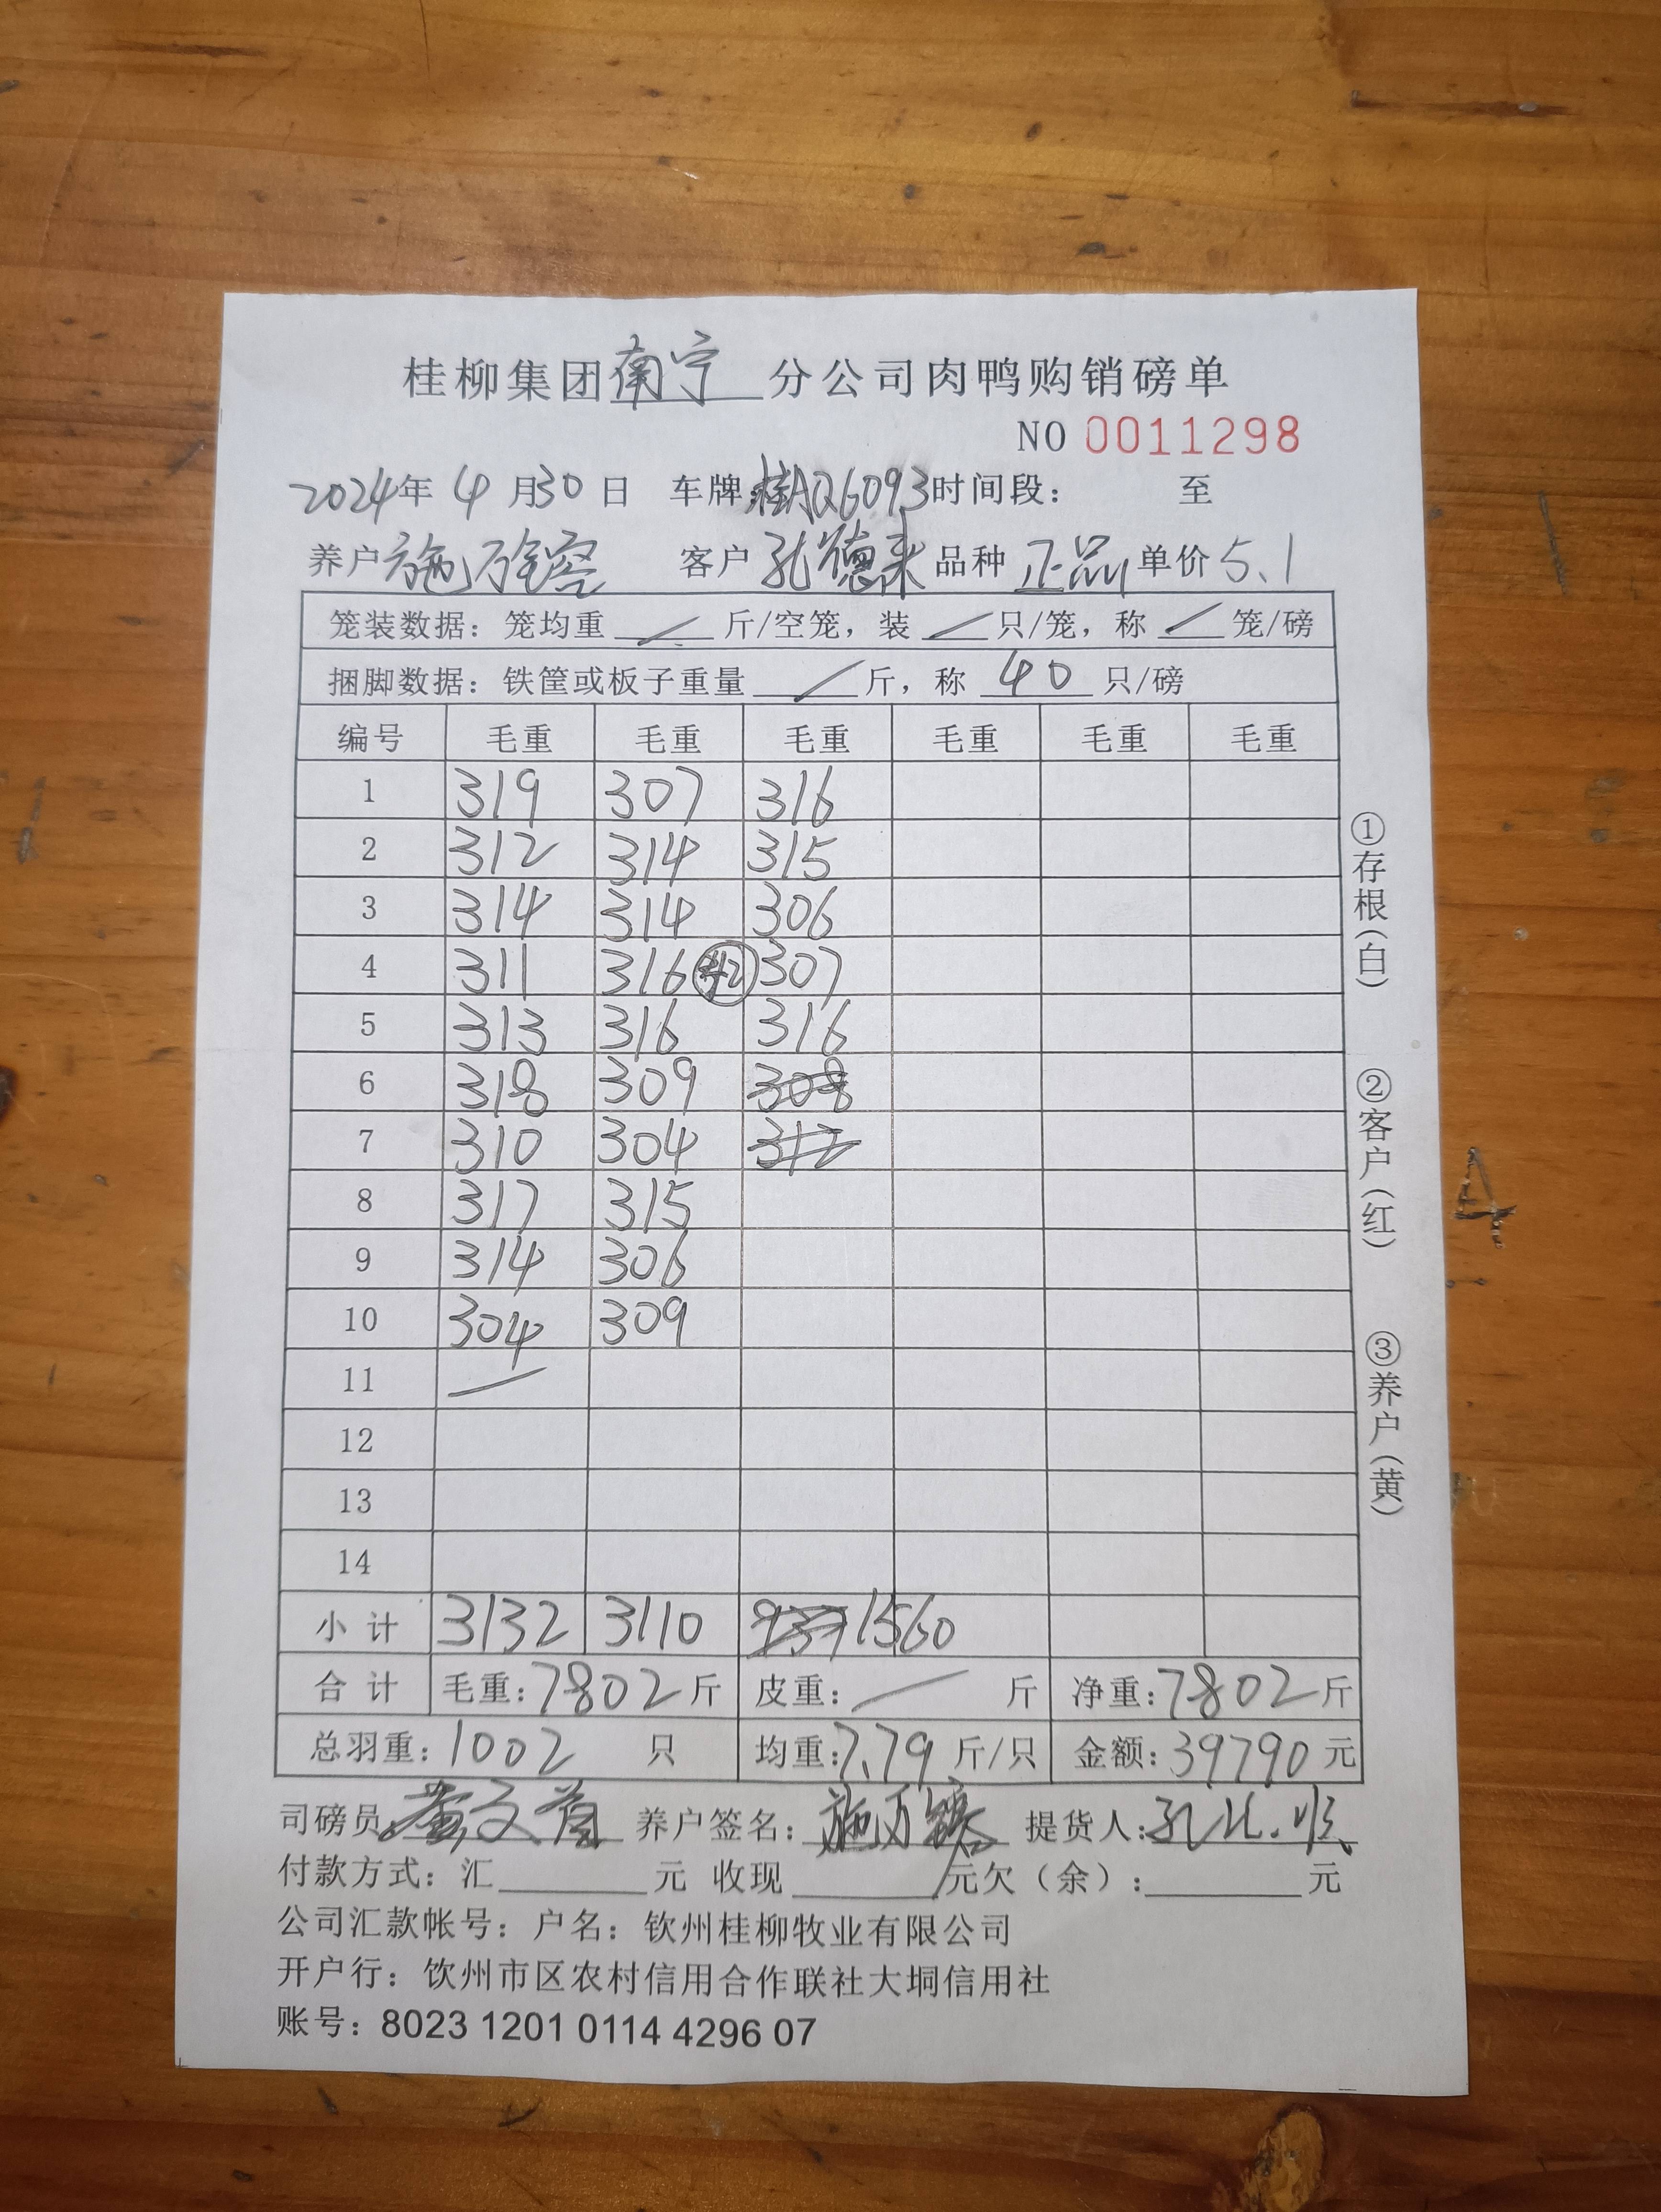 桂柳集团南宁分公司肉鸭购销磅单
NO 0011298
2024年 4 月30 日 车牌:桂AQ6093时间段： 至
养户施 客户孔德来品种 正品 单价5.1
笼装数据：笼均重 / 斤/空笼，装 / 只/笼，称 / 笼/磅
捆脚数据：铁筐或板子重量 / 斤，称 40 只/磅
编号 毛重 毛重 毛重 毛重 毛重 毛重
1 319 307 316
2 312 314 315
3 314 314 306
4 311 316 42 307
5 313 316 316
6 318 309 308
7 310 304 312
8 317 315
9 314 306
10 304 309
11 /
12
13
14
小计 3132 3110 1560
合计 毛重：7802斤 皮重：/ 斤 净重：7802斤
总羽重：1002 只 均重：7.79 斤/只 金额：39790元
司磅员:黄文 养户签名：施万 提货人：孔
付款方式：汇 元 收现 元欠（余）： 元
公司汇款帐号：户名：钦州桂柳牧业有限公司
开户行：饮州市区农村信用合作联社大垌信用社
账号：8023 1201 0114 4296 07
①存根(白)
②客户(红)
③养户(黄)